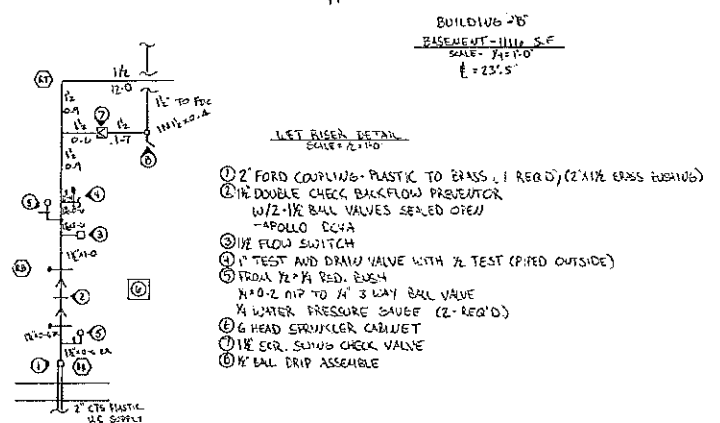 BUILDING "B"
BASEMENT - 1111 S.F
SCALE - 1/4=1'-0"
℄ = 23'.5"
WET RISER DETAIL
SCALE = 1/2=1'-0
① 2" FORD COUPLING - PLASTIC TO BRASS, 1 REQ'D, (2"X1½ BRASS BUSHING)
② 1½" DOUBLE CHECK BACKFLOW PREVENTOR
W/2-1½ BALL VALVES SEALED OPEN
-APOLLO DCVA
③ 1½ FLOW SWITCH
④ 1" TEST AND DRAIN VALVE WITH ½ TEST (PIPED OUTSIDE)
⑤ FROM ½ x ¼ RED. BUSH
¼ x 0-2 NIP TO ¼" 3 WAY BALL VALVE
¼ WATER PRESSURE GAUGE (2-REQ'D)
⑥ 6 HEAD SPRINKLER CABINET
⑦ 1½" SCR. SWING CHECK VALVE
⑧ ½" BALL DRIP ASSEMBLE
RT
1½
12-0
1½" TO FDC
1½
0-9
⑦
1½
0-6
1½
1-7
1N 1½ x 0-4
⑧
1½
0-9
⑤
④
③
1½ x 1-0
②
⑥
⑤
①
2" CTS PLASTIC
U.G SUPPLY